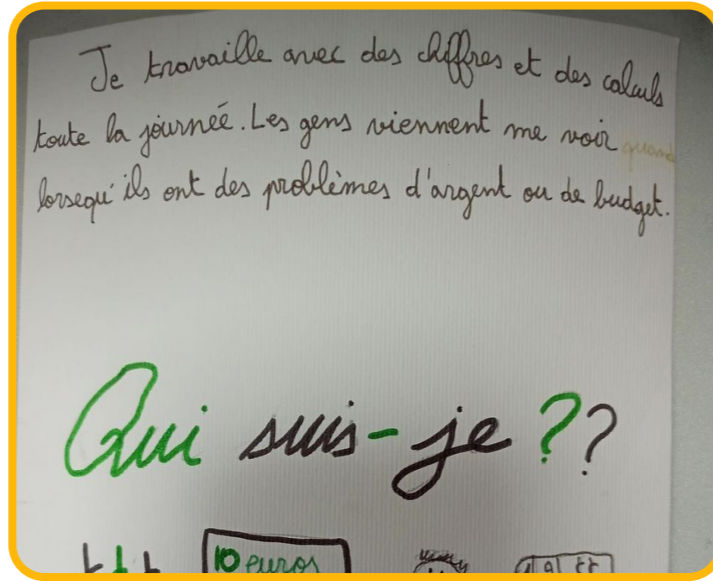 Je travaille avec des chiffres et des calculs
toute la journée. Les gens viennent me voir quand
lorsequ'ils ont des problèmes d'argent ou de budget.
Qui suis-je ??
10 euros